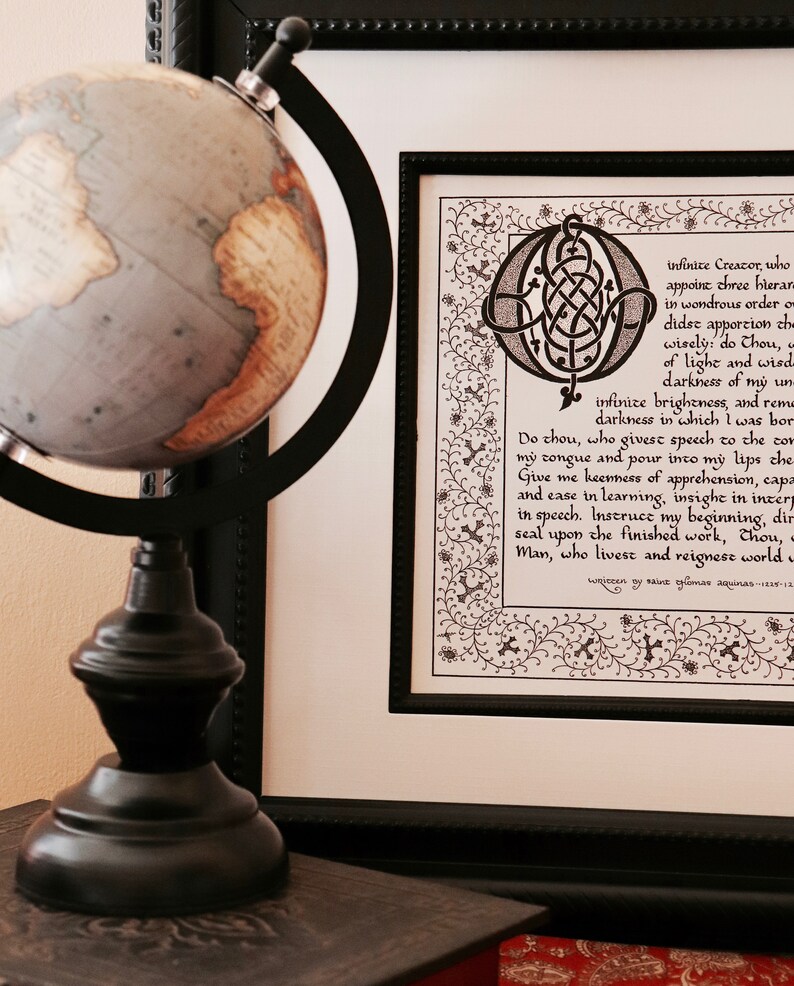 O infinite Creator, who
appoint three hierar
in wondrous order o
didst apportion the
wisely: do Thou, w
of light and wisd
darkness of my un
infinite brightness, and rem
darkness in which I was bor
Do thou, who givest speech to the ton
my tongue and pour into my lips the
Give me keenness of apprehension, capa
and ease in learning, insight in interp
in speech. Instruct my beginning, dir
seal upon the finished work, Thou,
Man, who livest and reignest world
written by saint Thomas aquinas · 1225-12